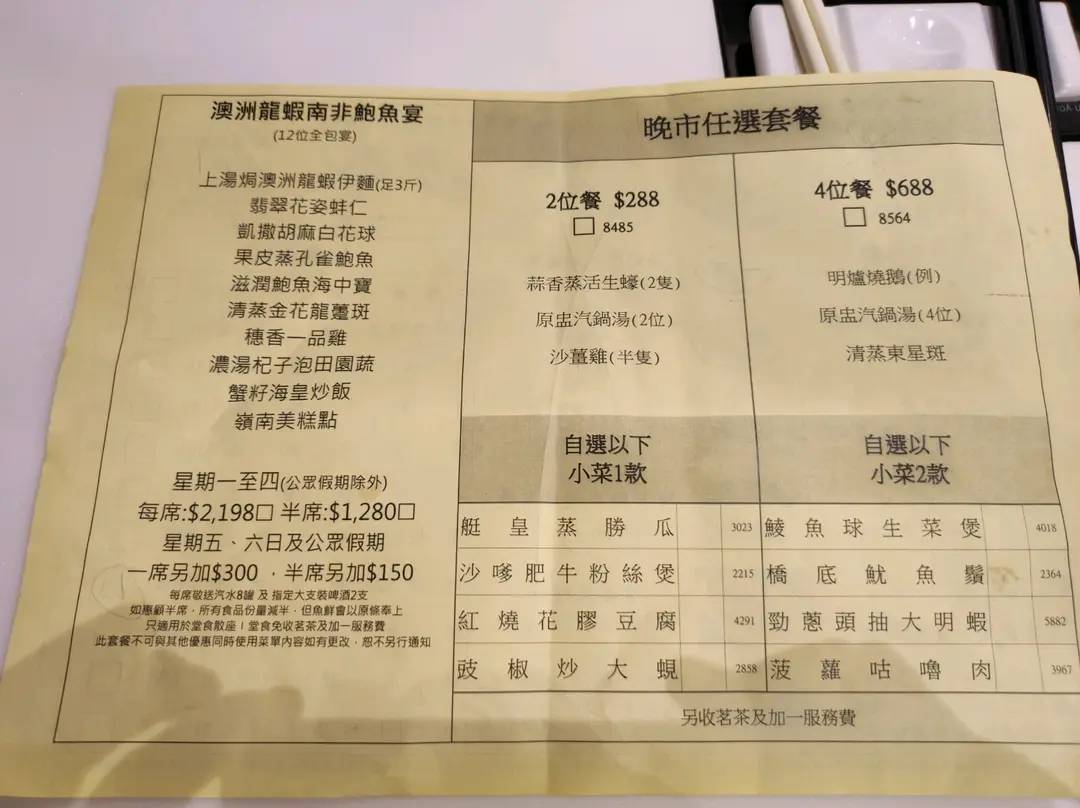 澳洲龍蝦南非鮑魚宴
(12位全包宴)
上湯焗澳洲龍蝦伊麵(足3斤)
翡翠花姿蚌仁
凱撒胡麻白花球
果皮蒸孔雀鮑魚
滋潤鮑魚海中寶
清蒸金花龍躉斑
穗香一品雞
濃湯杞子泡田園蔬
蟹籽海皇炒飯
嶺南美糕點
星期一至四(公眾假期除外)
每席:$2,198□ 半席:$1,280□
星期五、六日及公眾假期
一席另加$300 ，半席另加$150
每席敬送汽水8罐 及 指定大支裝啤酒2支
如惠顧半席，所有食品份量減半，但魚鮮會以原條奉上
只適用於堂食散座！堂食免收茗茶及加一服務費
此套餐不可與其他優惠同時使用菜單內容如有更改，恕不另行通知
晚市任選套餐
2位餐 $288
□ 8485
蒜香蒸活生蠔(2隻)
原盅汽鍋湯(2位)
沙薑雞(半隻)
自選以下
小菜1款
4位餐 $688
□ 8564
明爐燒鵝(例)
原盅汽鍋湯(4位)
清蒸東星斑
自選以下
小菜2款
艇皇蒸勝瓜 3023
鯪魚球生菜煲 4018
沙嗲肥牛粉絲煲 2215
橋底魷魚鬚 2364
紅燒花膠豆腐 4291
勁蔥頭抽大明蝦 5882
豉椒炒大蜆 2858
菠蘿咕嚕肉 3967
另收茗茶及加一服務費